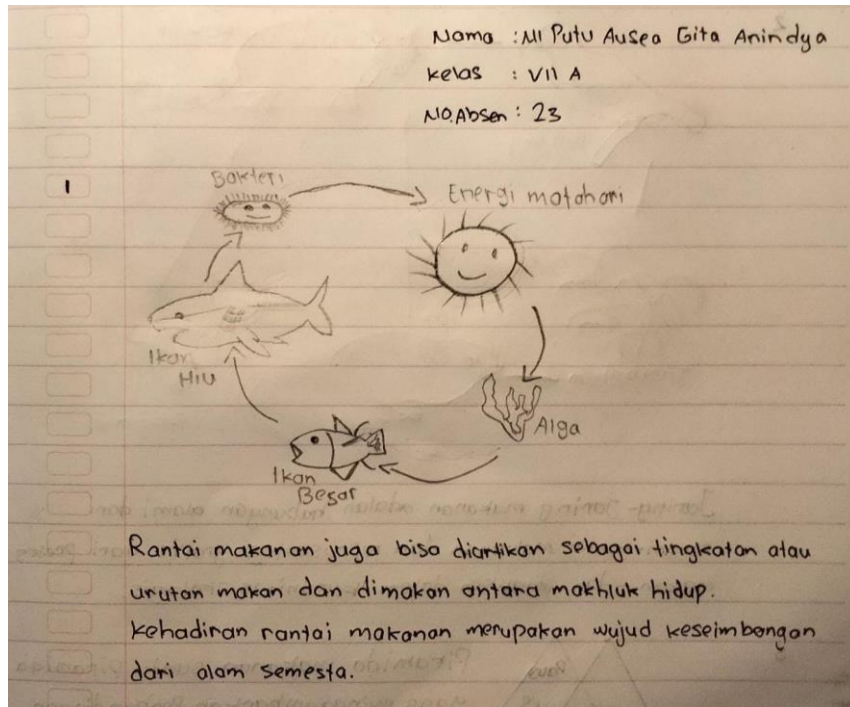 Nama : Ni Putu Ausea Gita Anindya
Kelas : VII A
NO.Absen : 23
1
Bakteri
Energi matahari
Ikan
Hiu
Alga
Ikan
Besar
Rantai makanan juga bisa diartikan sebagai tingkatan atau
urutan makan dan dimakan antara makhluk hidup.
Kehadiran rantai makanan merupakan wujud keseimbangan
dari alam semesta.